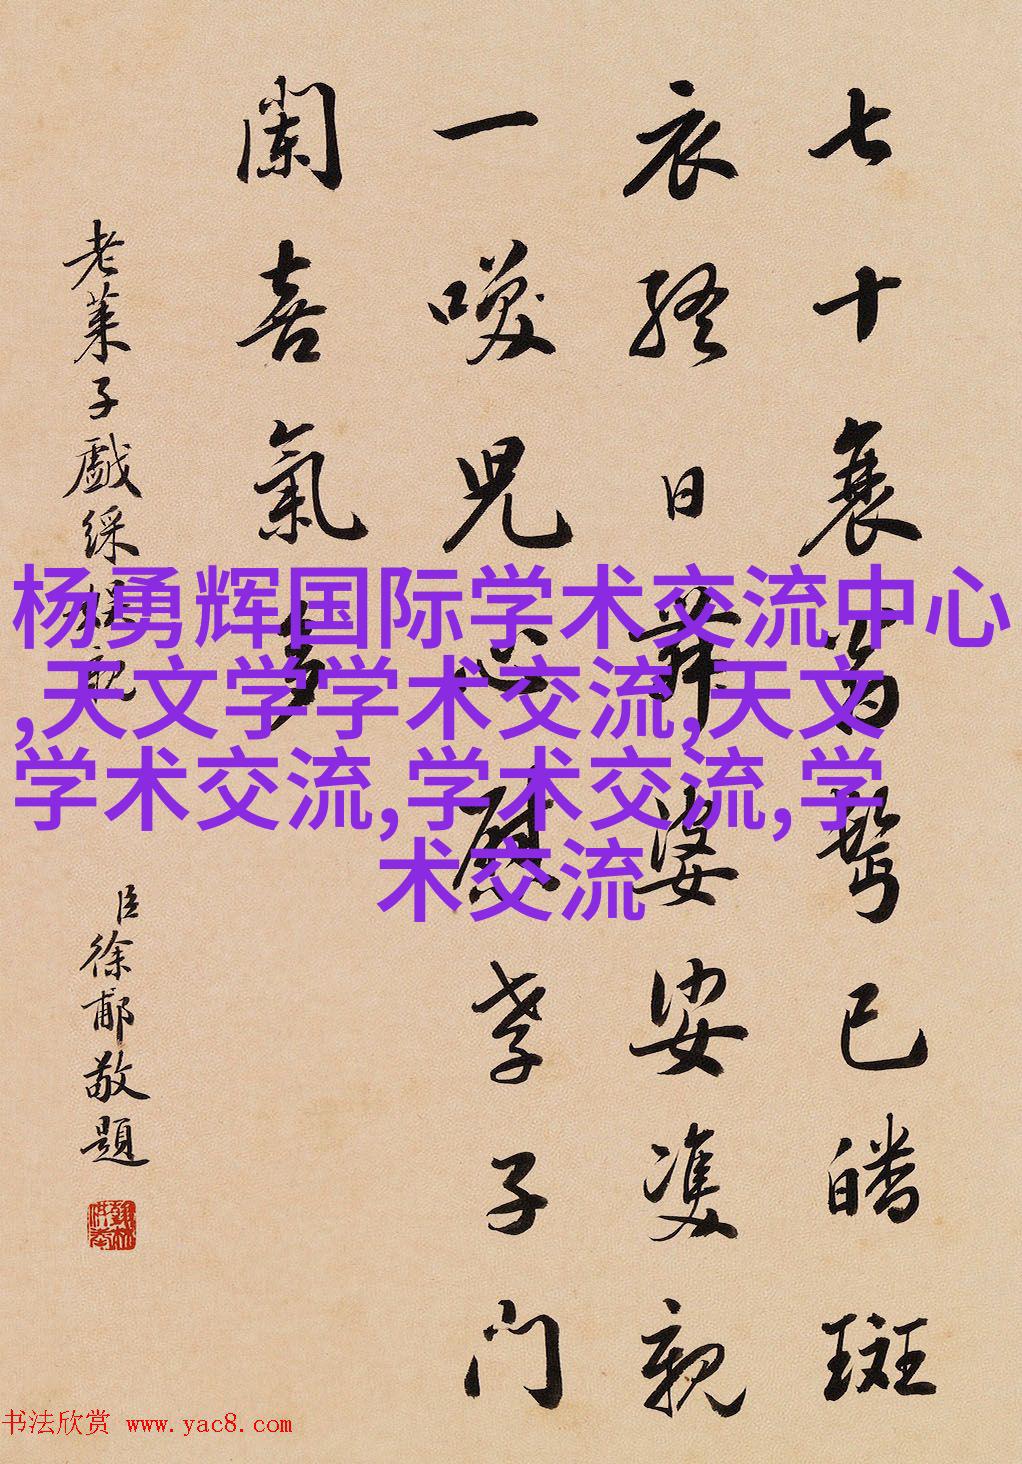 七十衰翁鬢已皤斑
衣終日舞婆娑雙親
一喚兒心慰孝子門
闌喜氣多
老萊子戲綵娛親
臣徐郙敬題
杨勇辉国际学术交流中心
,天文学学术交流,天文
学术交流,学术交流,学
术交流
书法欣赏 www.yac8.com